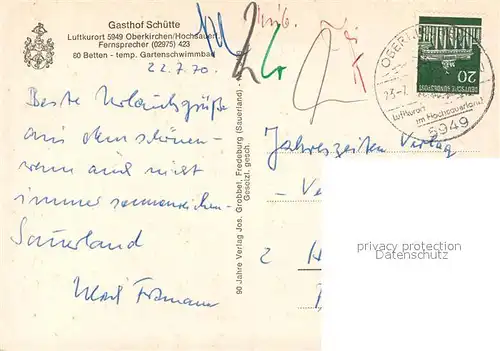 Gasthof Schütte
Luftkurort 5949 Oberkirchen/Hochsauerl.
Fernsprecher (02975) 423
80 Betten - temp. Gartenschwimmbad
22.7.70.
Beste Urlaubsgrüße
aus dem schönen -
wenn auch nicht
immer sonnenreichen -
Sauerland
90 Jahre Verlag Jos. Grobbel, Fredeburg (Sauerland)
Gesetzl. gesch.
20
DEUTSCHE BUNDESPOST
Luftkurort
im Hochsauerland
5949
Jahreszeiten Verlag
- Ve
2 H
privacy protection
Datenschutz